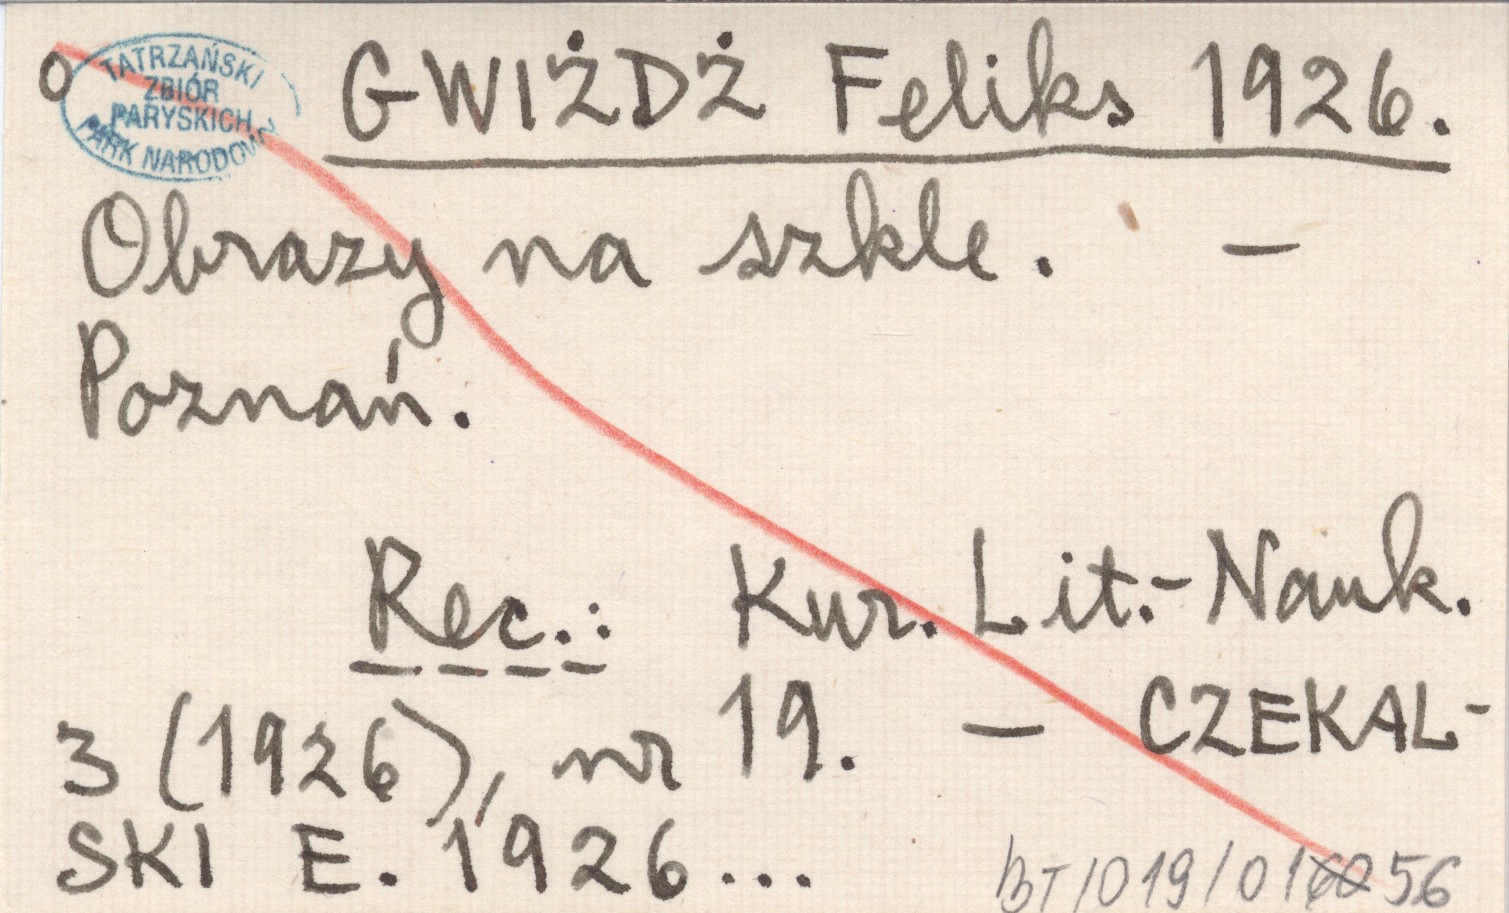 O
TATRZAŃSKI
ZBIÓR
PARYSKICH
PARK NARODOWY
GWIŻDŻ Feliks 1926.
Obrazy na szkle. –
Poznań.
Rec.: Kur. Lit.-Nauk.
3 (1926), nr 19. – CZEKAL-
SKI E. 1926...
BT/019/016056